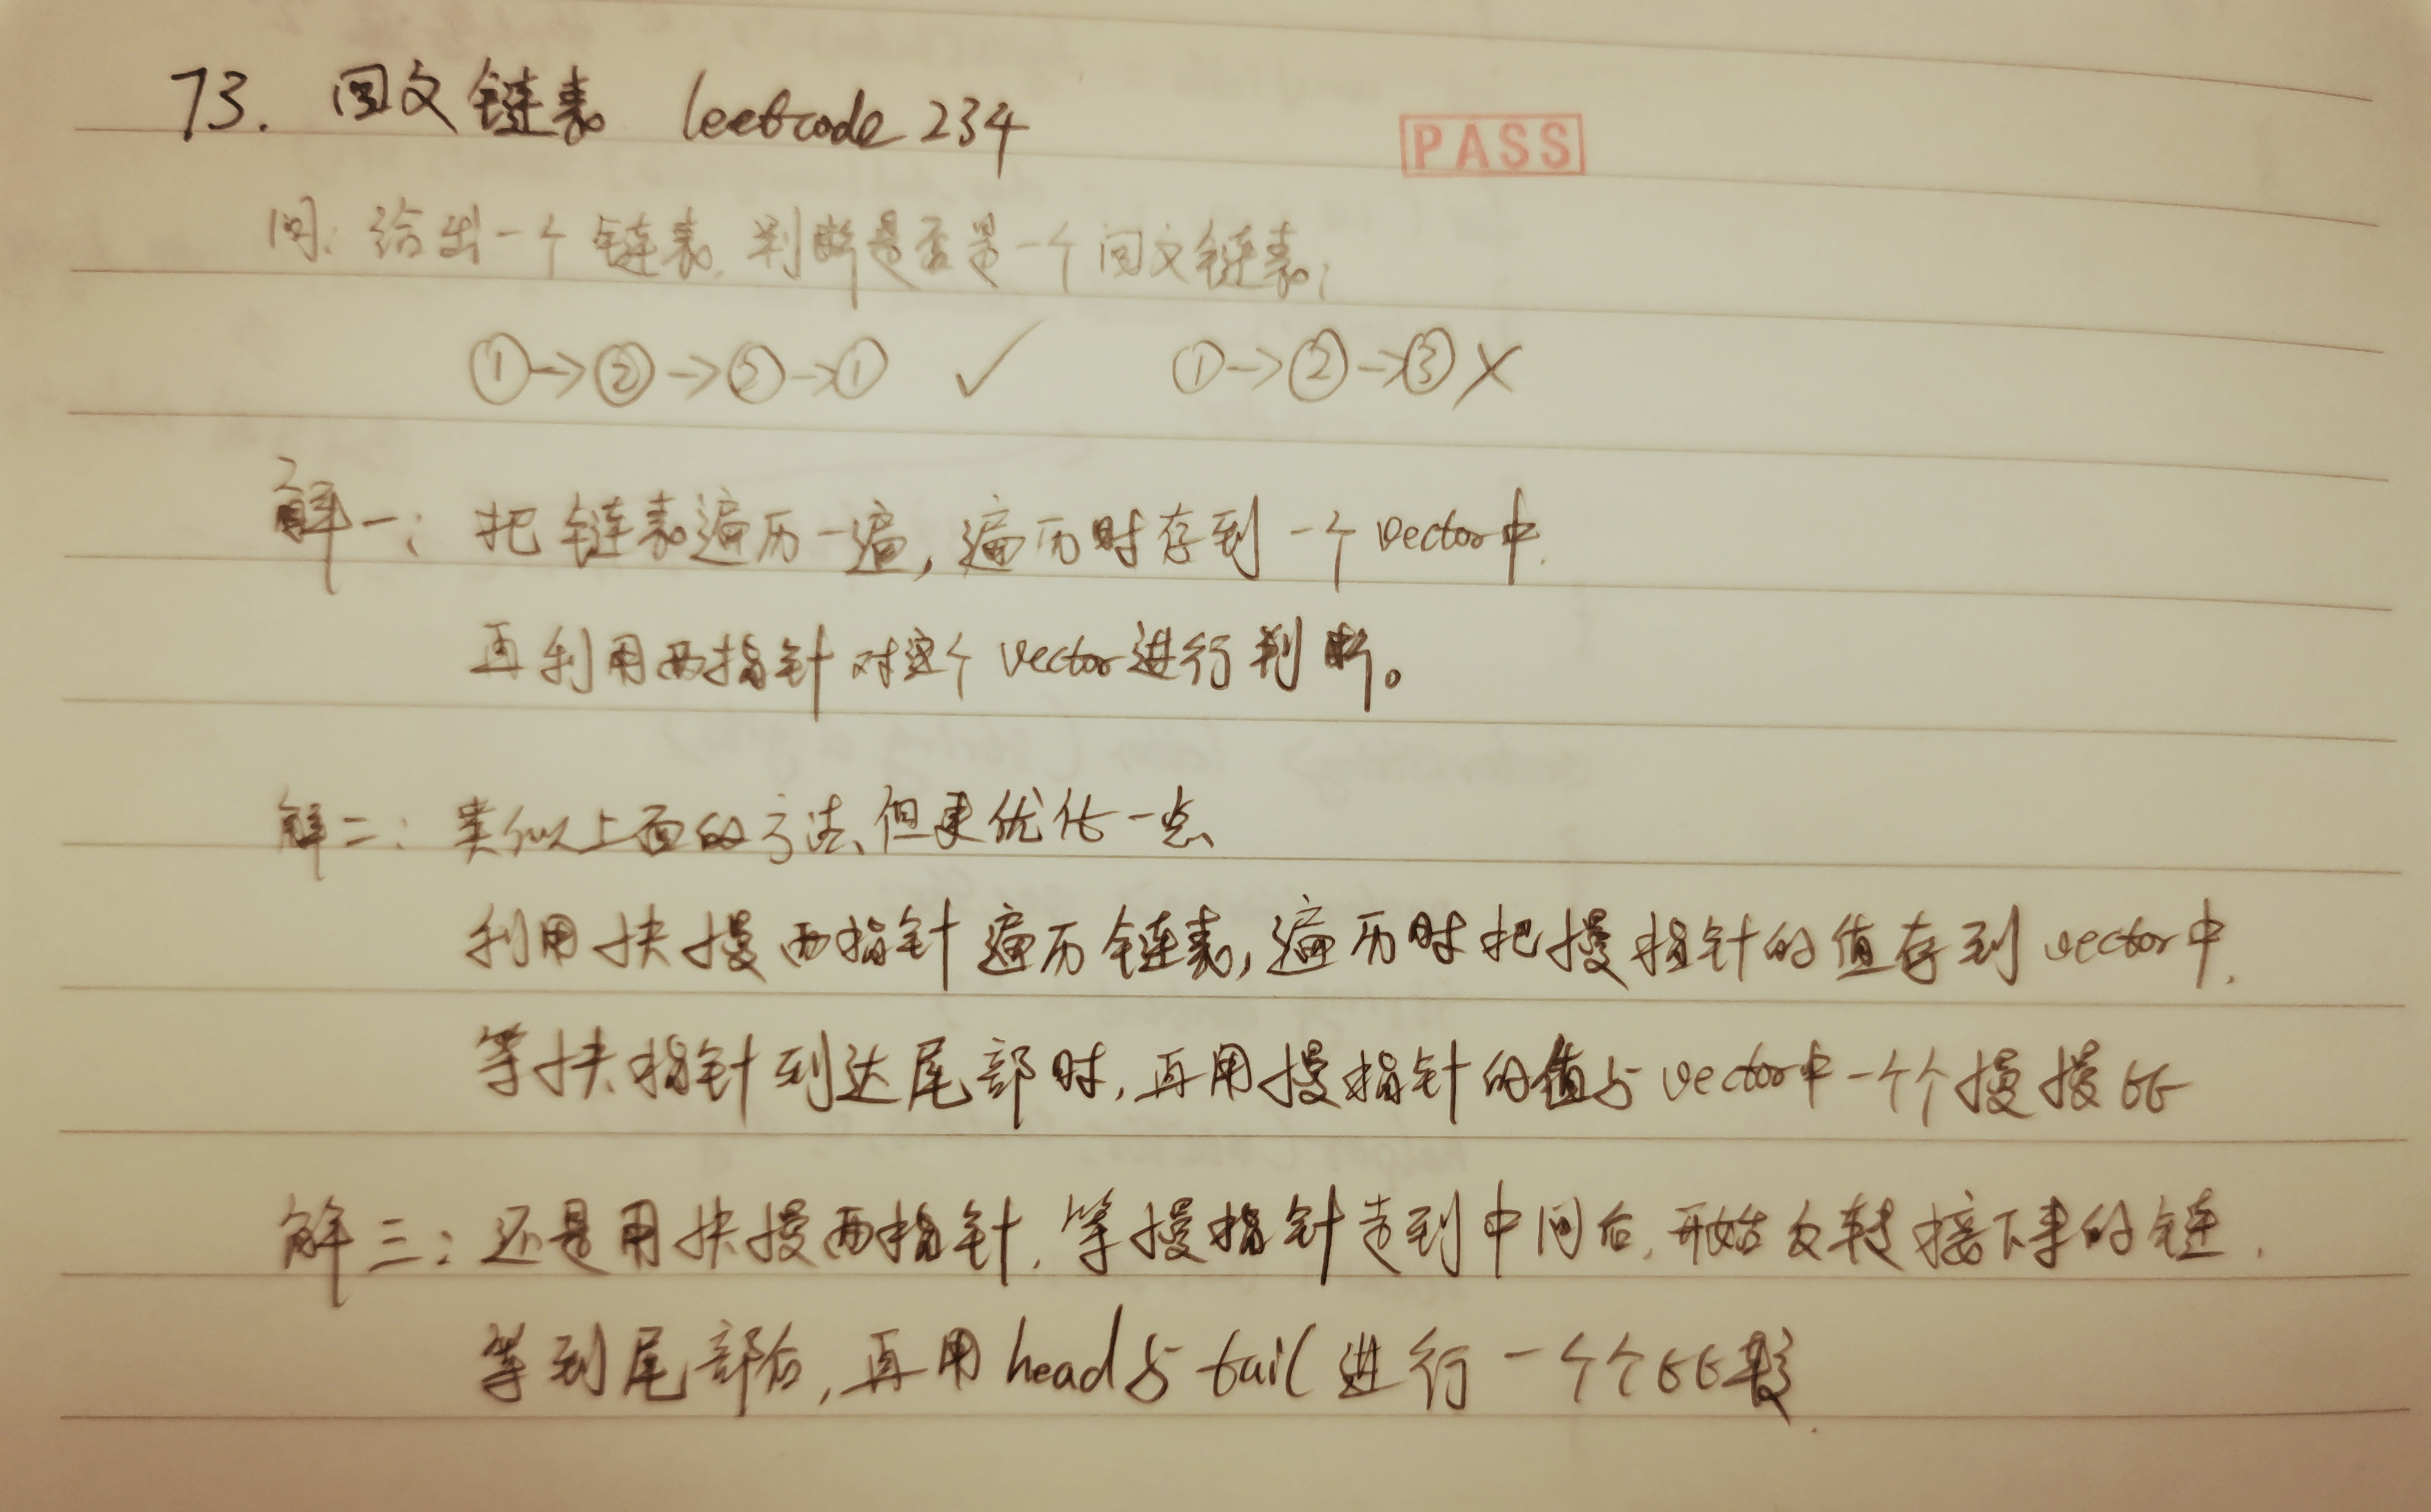 73. 回文链表 leetcode 234
PASS
问: 给出一个链表, 判断是否是一个回文链表;
①→②→②→① ✓ ①→②→③ ✗
解一: 把链表遍历一遍, 遍历时存到一个vector中.
再利用两指针对这个vector进行判断。
解二: 类似上面的方法, 但更优化一点
利用快慢两指针遍历链表, 遍历时把慢指针的值存到vector中.
等快指针到达尾部时, 再用慢指针的值与vector中一个个慢慢比
解三: 还是用快慢两指针, 等慢指针走到中间后, 开始反转接下来的链.
等到尾部后, 再用head与tail进行一个个比较.